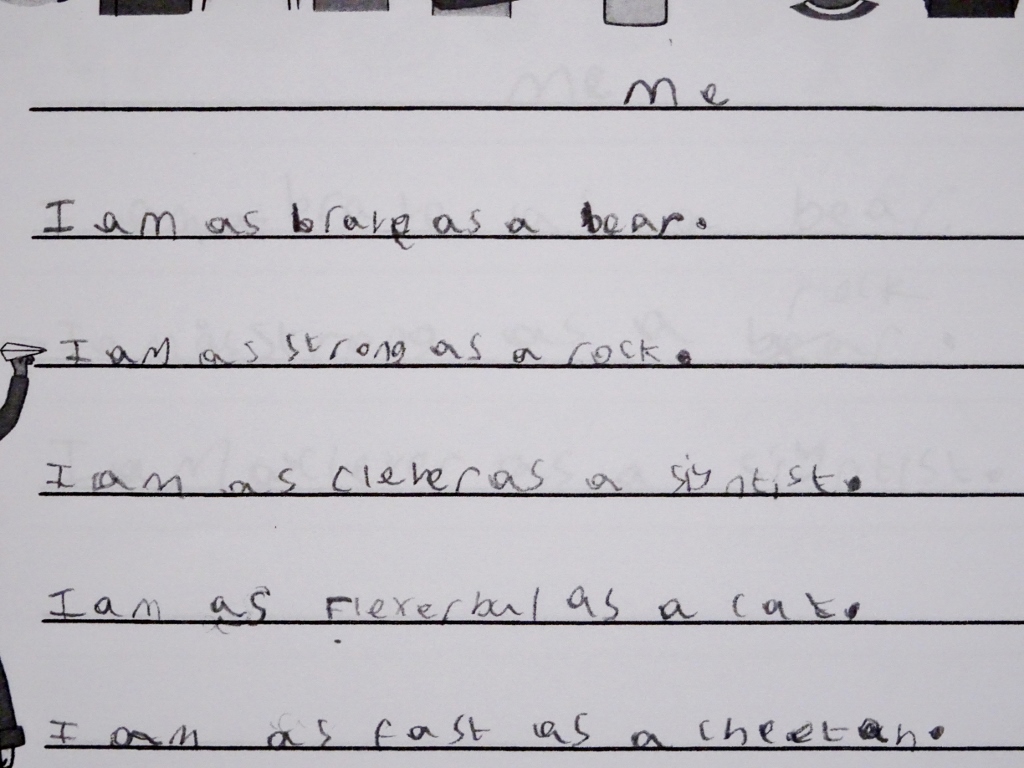 Me
I am as brave as a bear.
I am as strong as a rock.
I am as clever as a siyntist.
I am as Flexerbul as a cat.
I am as fast as a cheetah.